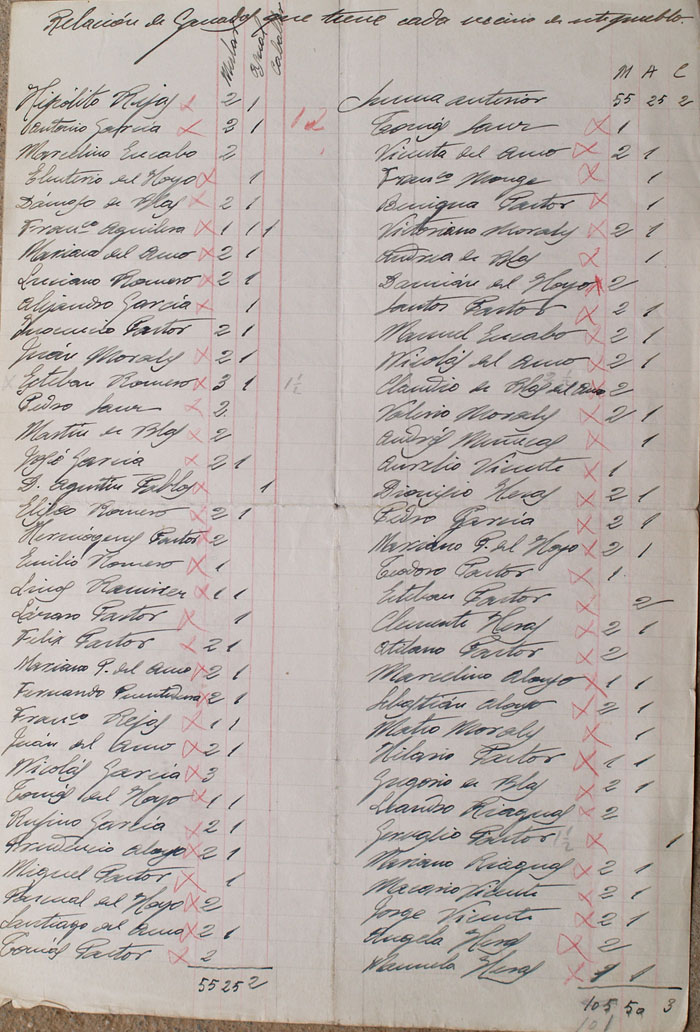 Relación de Ganados que tiene cada vecino de este pueblo.
Mular Asnal Caballar
Hipólito Rejas 2 1
Antonio García 2 1
Marcelino Encabo 2
Eleuterio del Hoyo 1
Dámaso de Blas 2 1
Franco Aguilera 1 1 1
Mariano del Amo 2 1
Luciano Romero 2 1
Alejandro García 1
Inocencio Pastor 2 1
Juán Morales 2 1
Esteban Romero 3 1 1½
Pedro Sanz 2
Martín de Blas 2
José García 2 1
D. Agustín Pablos 1
Eliseo Romero 2 1
Hermógenes Pastor 2
Emilio Romero 1
Lino Ramirez 1 1
Lázaro Pastor 1
Felix Pastor 2 1
Mariano P. del Amo 2 1
Fernando Puentedura 2 1
Franco Rejas 1 1
Juán del Amo 2 1
Nicolás García 3
Tomás del Hoyo 1 1
Rufino García 2 1
Prudencio Alonso 2 1
Miguel Pastor 1
Pascual del Hoyo 2
Santiago del Amo 2 1
Tomás Pastor 2
55 25 2
M A C
Suma anterior 55 25 2
Tomás Sanz 1
Vicenta del Amo 2 1
Franco Monge 1
Benigna Pastor 1
Victoriano Morales 2 1
Andrea de Blas 1
Damián del Hoyo 2
Santos Pastor 2 1
Manuel Encabo 2 1
Nicolás del Amo 2 1
Claudio de Blas del Amo 2
Valerio Morales 2 1
Andrés 1
Aurelio Vicente 1
Dionisio Heras 2 1
Pedro García 2 1
Mariano P. del Hoyo 2 1
Teodoro Pastor 1
Esteban Pastor 2
Clemente Heras 2 1
Atilano Pastor 2
Marcelino Alonso 1 1
Sebastián Alonso 2 1
Mateo Morales 1
Hilario Pastor 1 1
Gregorio de Blas 2 1
Leandro Riaguas 2
Gervasio Pastor 1½ 1
Mariano Riaguas 2 1
Macario Vicente 2 1
Jorge Vicente 2 1
Angela Heras 2
Manuela Heras 1 1
105 50 3